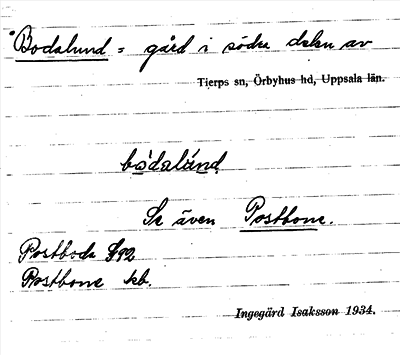 Bodalund = gård i södra delen av
Tierps sn, Örbyhus hd, Uppsala län.
bòdalúnd
Se även Postbone.
Postboda S92
Postbone kb.
Ingegärd Isaksson 1934.